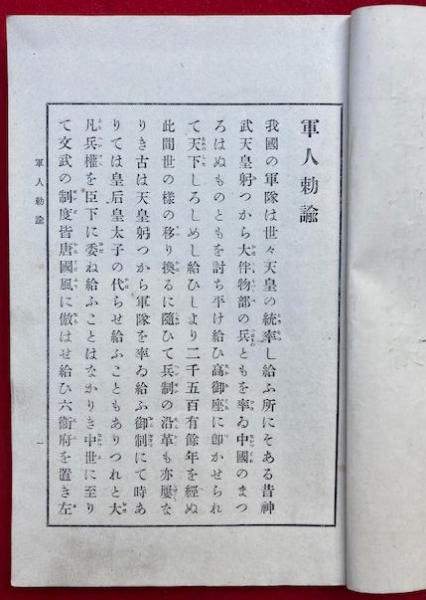 軍人勅諭
我國の軍隊は世々天皇の統率し給ふ所にそある昔神
武天皇躬つから大伴物部の兵ともを率ゐ中國のまつ
ろはぬものともを討ち平け給ひ高御座に卽かせられ
て天下しろしめし給ひしより二千五百有餘年を經ぬ
此間世の樣の移り換るに隨ひて兵制の沿革も亦屢な
りき古は天皇躬つから軍隊を率ゐ給ふ御制にて時あ
りては皇后皇太子の代らせ給ふこともありつれと大
凡兵權を臣下に委ね給ふことはなかりき中世に至り
て文武の制度皆唐國風に傚はせ給ひ六衞府を置き左
軍人勅諭
一